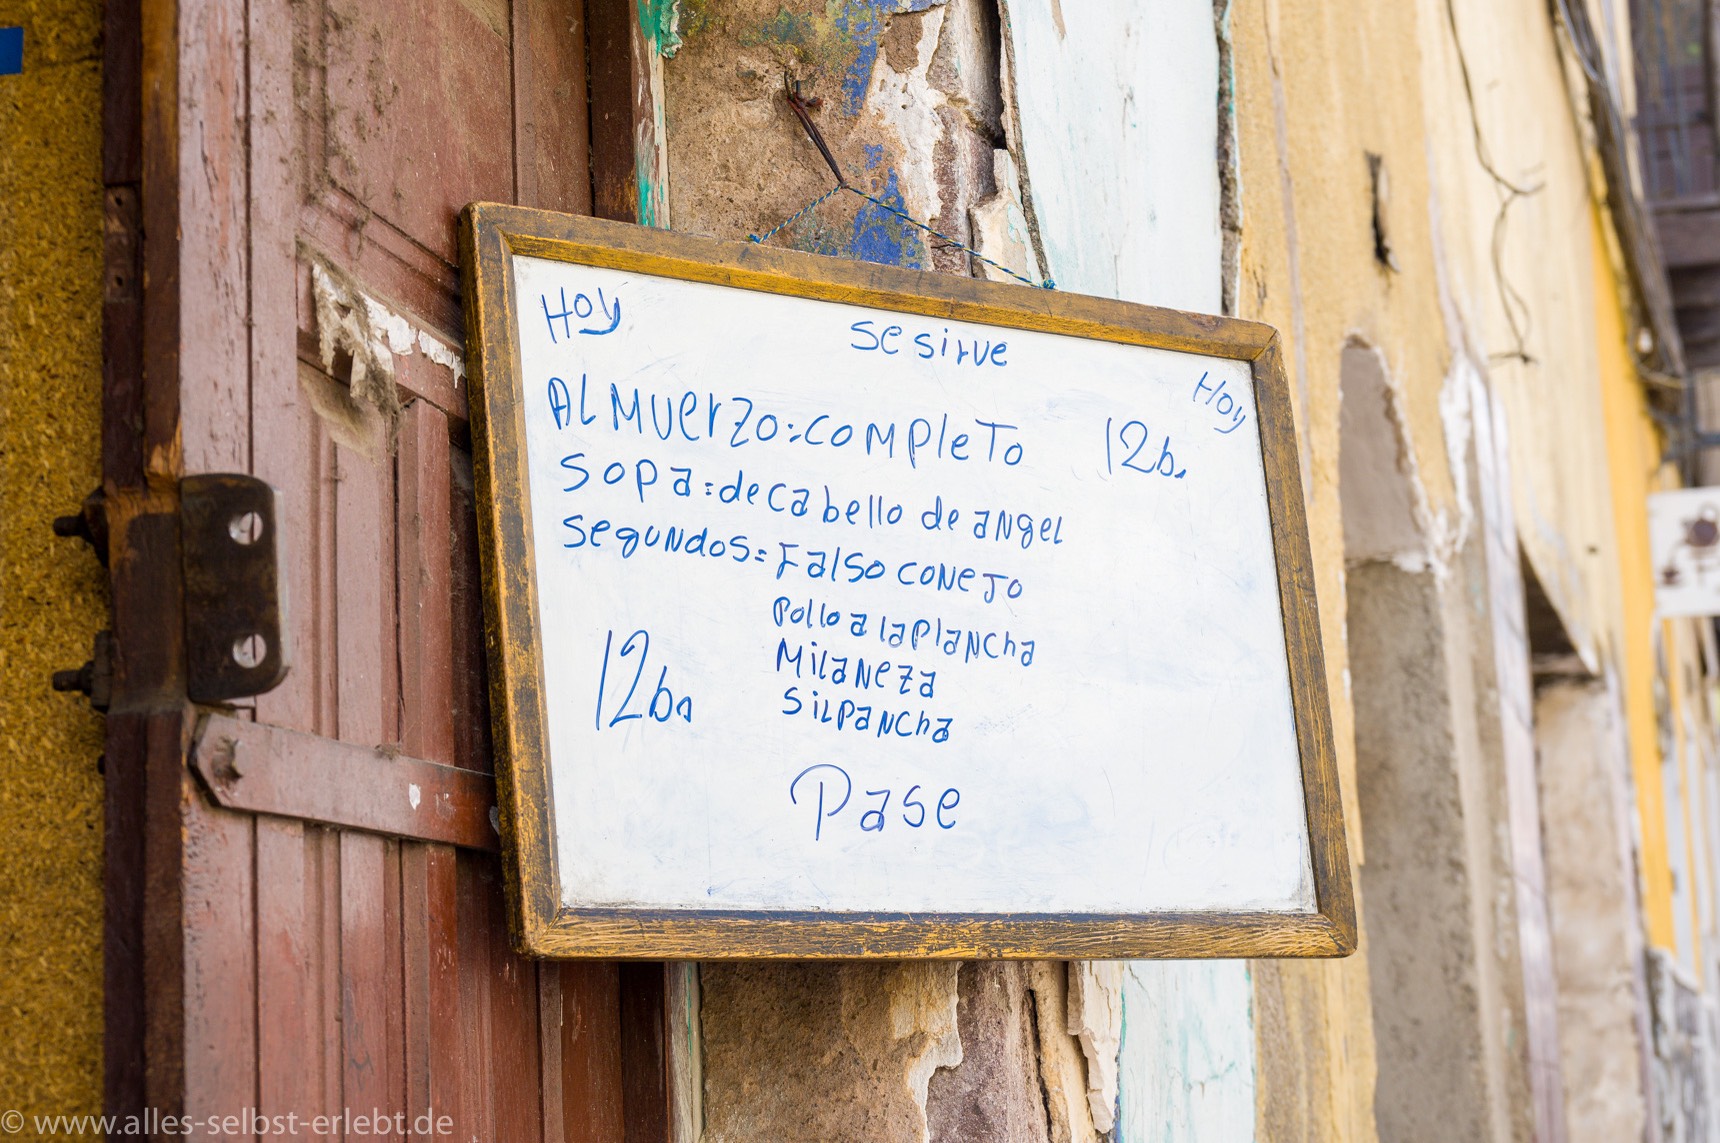 Hoy
se sirve
Hoy
ALMUERZO: COMPLETO 12b.
SOPA: de cabello de angel
Segundos: Falso conejo
Pollo a la plancha
Milaneza
Silpancha
12b.
Pase
© www.alles-selbst-erlebt.de